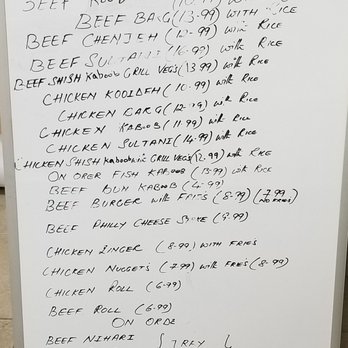 BEEF BARG (13.99) WITH RICE
BEEF CHENJEH (12.99) with RICE
BEEF SULTANI (16.99) with RICE
BEEF SHISH KABOOB GRILL VEGS (13.99) with RICE
CHICKEN KOOIDEH (10.99) with RICE
CHICKEN BARG (12.99) with RICE
CHICKEN KABOOB (11.99) with RICE
CHICKEN SULTANI (14.99) with RICE
CHICKEN SHISH KABOOB with GRILL VEGS (12.99) with RICE
ON ORER FISH KABOOB (13.99) with RICE
BEEF BUN KABOOB (4.99)
BEEF BURGER with FRIES (8.99) (7.99 NO FRIES)
BEEF PHILLY CHEESE (9.99)
CHICKEN ZINGER (8.99) WITH FRIES
CHICKEN NUGGETS (7.99) with FRIES (8.99)
CHICKEN ROLL (6.99)
BEEF ROLL (6.99)
ON ORDE
BEEF NIHARI